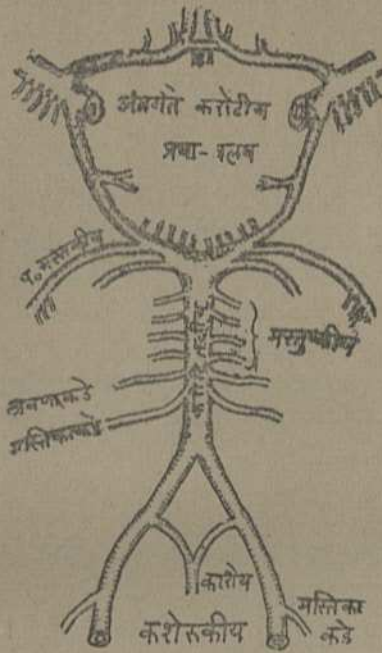 अंतर्गत करोटीय
प्रथा-वलय
प. मस्तकीय
मस्तुष्कीये
श्रवणाकडे
मस्तिकाकडे
काशेय
कशेरुकीय
मस्तिका
कडे